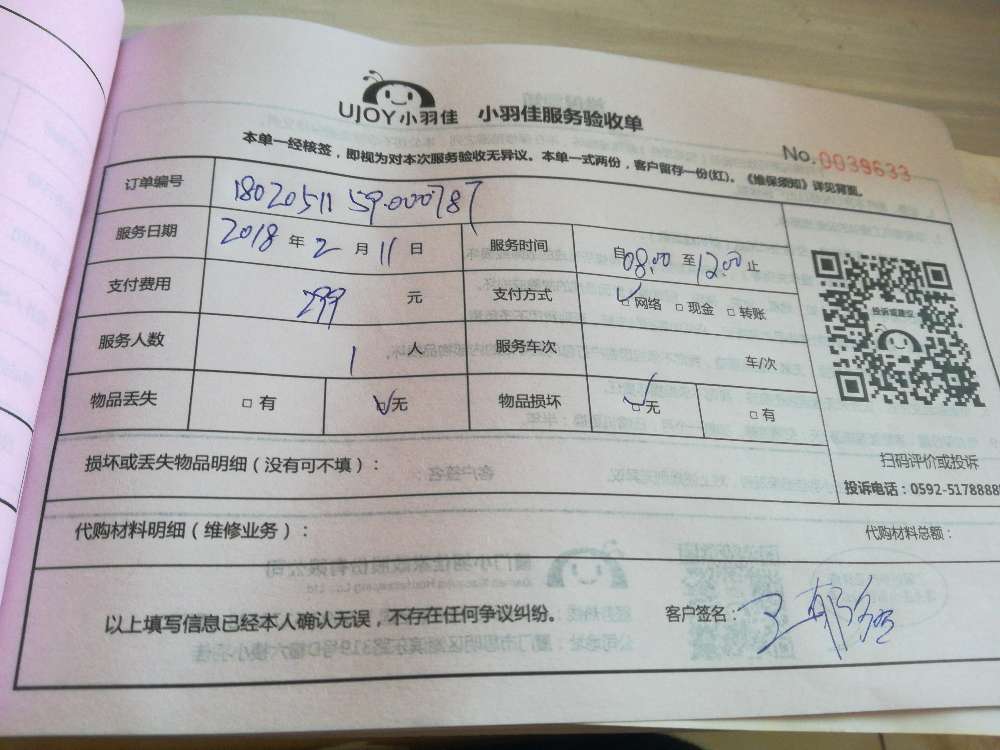 UJOY小羽佳 小羽佳服务验收单
No.0039633
本单一经核签，即视为对本次服务验收无异议。本单一式两份，客户留存一份(红)。《维保须知》详见背面。
订单编号 1802051159000787
服务日期 2018 年 2 月 11 日 服务时间 自08:00 至12:00 止
支付费用 299 元 支付方式 ☑网络 □现金 □转账
投诉或建议
服务人数 1 人 服务车次 车/次
物品丢失 □有 ☑无 物品损坏 ☑无 □有
损坏或丢失物品明细（没有可不填）：
扫码评价或投诉
投诉电话：0592-5178888
代购材料明细（维修业务）： 代购材料总额：
以上填写信息已经本人确认无误，不存在任何争议纠纷。 客户签名：